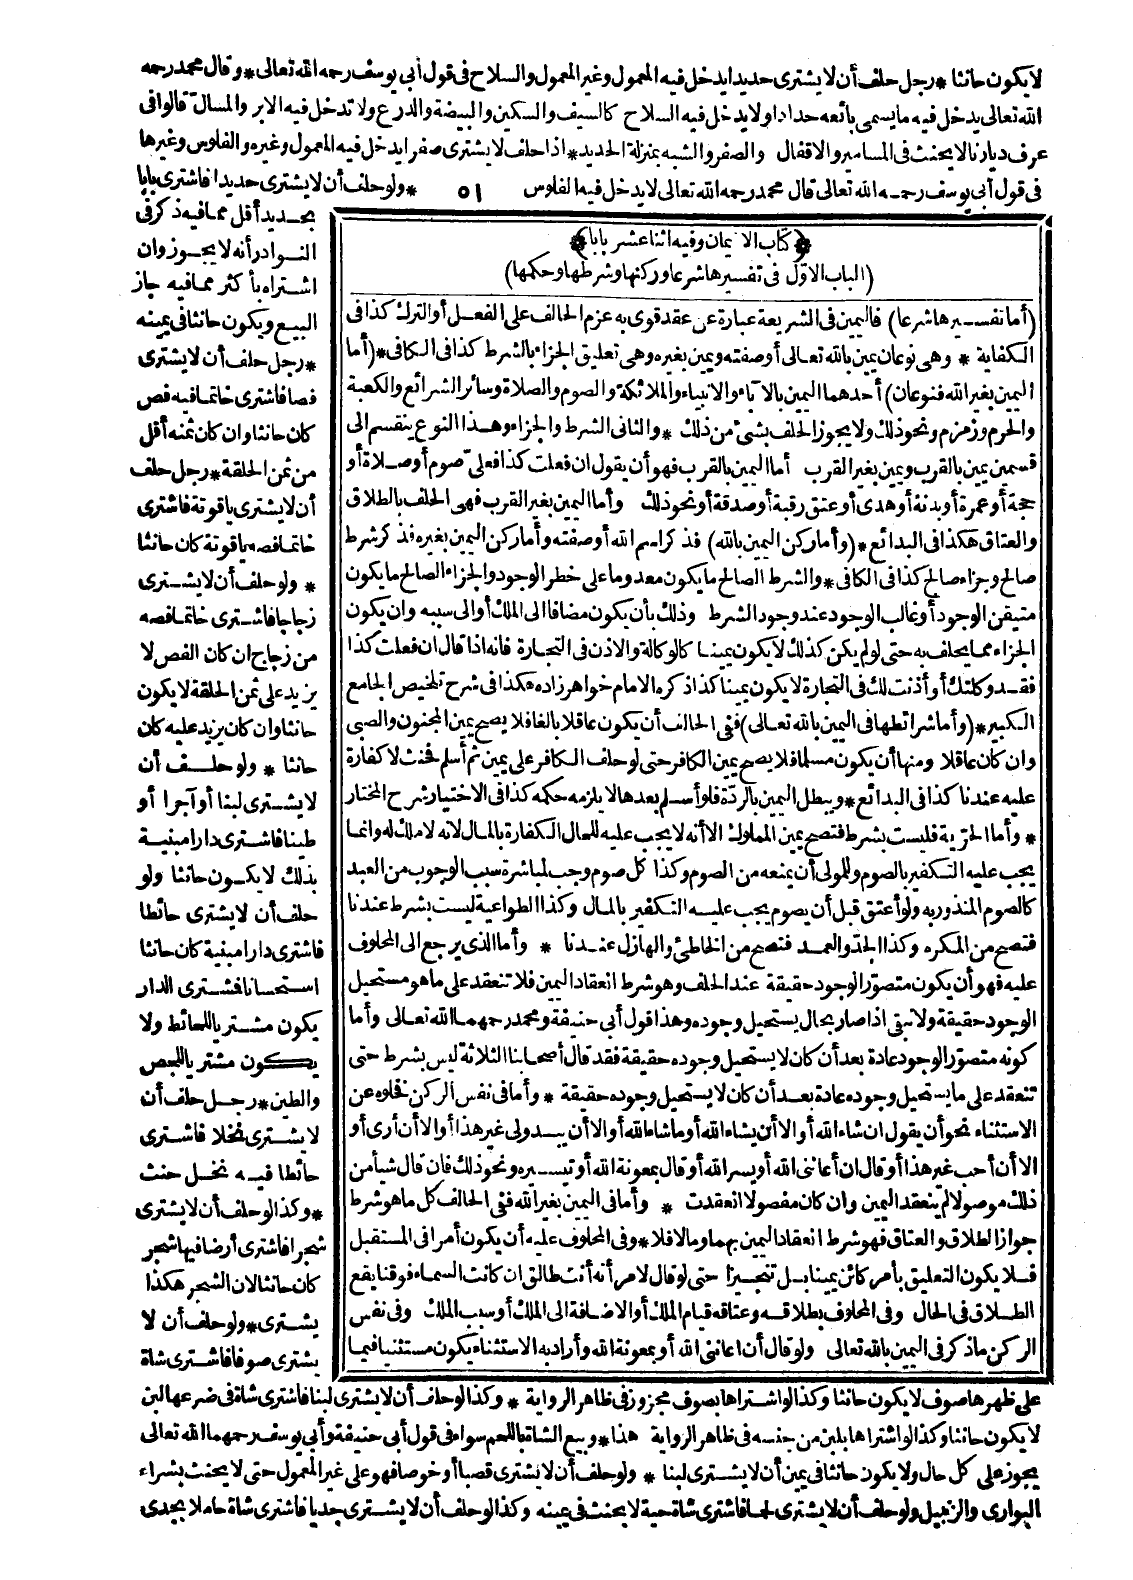 لايكون حانثا * رجل حلف أن لا يشترى حديدا يدخل فيه المعمول وغير المعمول والسلاح فى قول أبى يوسف رحمه الله تعالى * وقال محمد رحمه
الله تعالى يدخل فيه ما يسمى بائعه حدادا ولا يدخل فيه السلاح كالسيف والسكين والبيضة والدرع ولا تدخل فيه الابر والمسال قالوا فى
عرف ديارنا لا يحنث فى المسامير والاقفال والصفر والشبه بمنزلة الحديد * اذا حلف لا يشترى صفرا يدخل فيه المعمول وغيره والفلوس وغيرها
فى قول أبى يوسف رحمه الله تعالى قال محمد رحمه الله تعالى لا يدخل فيه الفلوس ٥١ * ولو حلف أن لا يشترى حديدا فاشترى بابا
بحديد أقل مما فيه ذكر فى
النوادر أنه لا يجوز وان
اشتراه بأكثر مما فيه جاز
البيع ويكون حانثا فى يمينه
* رجل حلف أن لا يشترى
فصا فاشترى خاتما فيه فص
كان حانثا وان كان ثمنه أقل
من ثمن الحلقة * رجل حلف
أن لا يشترى ياقوتة فاشترى
خاتما فصه ياقوتة كان حانثا
* ولو حلف أن لا يشترى
زجاجا فاشترى خاتما فصه
من زجاج ان كان الفص لا
يزيد على ثمن الحلقة لا يكون
حانثا وان كان يزيد عليه كان
حانثا * ولو حلف أن
لا يشترى لبنا أو آجرا أو
طينا فاشترى دارا مبنية
بذلك لا يكون حانثا ولو
حلف أن لا يشترى حائطا
فاشترى دارا مبنية كان حانثا
استحسانا فمشترى الدار
يكون مشتريا للحائط ولا
يكون مشتريا للجص
والطين * رجل حلف أن
لا يشترى نخلا فاشترى
حائطا فيه نخل حنث
* وكذا لو حلف أن لا يشترى
شجرا فاشترى أرضا فيها شجر
كان حانثا لان الشجر هكذا
يشترى * ولو حلف أن لا
يشترى صوفا فاشترى شاة
﴿كتاب الايمان وفيه اثنا عشر بابا﴾
(الباب الاوّل فى تفسيرها شرعا وركنها وشرطها وحكمها)
(أما تفسيرها شرعا) فاليمين فى الشريعة عبارة عن عقد قوى به عزم الحالف على الفعل أو الترك كذا فى
الكفاية * وهى نوعان يمين بالله تعالى أو صفته ويمين بغيره وهى تعليق الجزاء بالشرط كذا فى الكافى * (أما
اليمين بغير الله فنوعان) أحدهما اليمين بالآباء والانبياء والملائكة والصوم والصلاة وسائر الشرائع والكعبة
والحرم وزمزم ونحو ذلك ولا يجوز الحلف بشئ من ذلك * والثانى الشرط والجزاء وهذا النوع ينقسم الى
قسمين يمين بالقرب ويمين بغير القرب أما اليمين بالقرب فهو أن يقول ان فعلت كذا فعلىّ صوم أو صلاة أو
حجة أو عمرة أو بدنة أو هدى أو عتق رقبة أو صدقة أو نحو ذلك وأما اليمين بغير القرب فهى الحلف بالطلاق
والعتاق هكذا فى البدائع * (وأما ركن اليمين بالله) فذكر اسم الله أو صفته وأما ركن اليمين بغيره فذكر شرط
صالح وجزاء صالح كذا فى الكافى * والشرط الصالح ما يكون معدوما على خطر الوجود والجزاء الصالح ما يكون
متيقن الوجود أو غالب الوجود عند وجود الشرط وذلك بأن يكون مضافا الى الملك أو الى سببه وان يكون
الجزاء مما يحلف به حتى لو لم يكن كذلك لا يكون يمينا كالوكالة والاذن فى التجارة فانه اذا قال ان فعلت كذا
فقد وكلتك أو أذنت لك فى التجارة لا يكون يمينا كذا ذكره الامام خواهر زاده هكذا فى شرح تلخيص الجامع
الكبير * (وأما شرائطها فى اليمين بالله تعالى) ففى الحالف أن يكون عاقلا بالغا فلا يصح يمين المجنون والصبى
وان كان عاقلا ومنها أن يكون مسلما فلا يصح يمين الكافر حتى لو حلف الكافر على يمين ثم أسلم فحنث لا كفارة
عليه عندنا كذا فى البدائع * ويبطل اليمين بالردّة فلو أسلم بعدها لا يلزمه حكمه كذا فى الاختيار شرح المختار
* وأما الحرّية فليست بشرط فتصح يمين المملوك الا أنه لا يجب عليه للحال الكفارة بالمال لانه لا ملك له وانما
يجب عليه التكفير بالصوم وللمولى أن يمنعه من الصوم وكذا كل صوم وجب لمباشرة سبب الوجوب من العبد
كالصوم المنذور به ولو أعتق قبل أن يصوم يجب عليه التكفير بالمال وكذا الطواعية ليست بشرط عندنا
فتصح من المكره وكذا الجد والعمد فتصح من الخاطئ والهازل عندنا * وأما الذى يرجع الى المحلوف
عليه فهو أن يكون متصوّر الوجود حقيقة عند الحلف وهو شرط انعقاد اليمين فلا تنعقد على ما هو مستحيل
الوجود حقيقة ولا تبقى اذا صار بحال يستحيل وجوده وهذا قول أبى حنيفة ومحمد رحمهما الله تعالى وأما
كونه متصوّر الوجود عادة بعد أن كان لا يستحيل وجوده حقيقة فقد قال أصحابنا الثلاثة ليس بشرط حتى
تنعقد على ما يستحيل وجوده عادة بعد أن كان لا يستحيل وجوده حقيقة * وأما فى نفس الركن فخلوه عن
الاستثناء نحو أن يقول ان شاء الله أو الا أن يشاء الله أو ما شاء الله أو الا أن يبدو لى غير هذا أو الا أن أرى أو
الا أن أحب غير هذا أو قال ان أعاننى الله أو يسر الله أو قال بمعونة الله أو تيسيره ونحو ذلك فان قال شيأ من
ذلك موصولا لم ينعقد اليمين وان كان مفصولا انعقدت * وأما فى اليمين بغير الله ففى الحالف كل ما هو شرط
جواز الطلاق والعتاق فهو شرط انعقاد اليمين بهما وما لا فلا * وفى المحلوف عليه أن يكون أمرا فى المستقبل
فلا يكون التعليق بأمر كائن يمينا بل تنجيزا حتى لو قال لامرأته أنت طالق ان كانت السماء فوقنا يقع
الطلاق فى الحال وفى المحلوف بطلاقه وعتاقه قيام الملك أو الاضافة الى الملك أو سبب الملك وفى نفس
الركن ما ذكر فى اليمين بالله تعالى ولو قال أن اعاننى الله أو بمعونة الله وأراد به الاستثناء يكون مستثنيا فيما
على ظهرها صوف لا يكون حانثا وكذا لو اشتراها بصوف مجزوز فى ظاهر الرواية * وكذا لو حلف أن لا يشترى لبنا فاشترى شاة فى ضرعها لبن
لا يكون حانثا وكذا لو اشتراها بلبن من جنسه فى ظاهر الرواية هذا * وبيع الشاة باللحم سواء فى قول أبى حنيفة وأبى يوسف رحمهما الله تعالى
يجوز على كل حال ولا يكون حانثا فى يمين أن لا يشترى لبنا * ولو حلف أن لا يشترى قصبا أو خوصا فهو على غير المعمول حتى لا يحنث بشراء
البوارى والزنبيل ولو حلف أن لا يشترى لحما فاشترى شاة حية لا يحنث فى يمينه وكذا لو حلف أن لا يشترى جديا فاشترى شاة حاملا بجدى